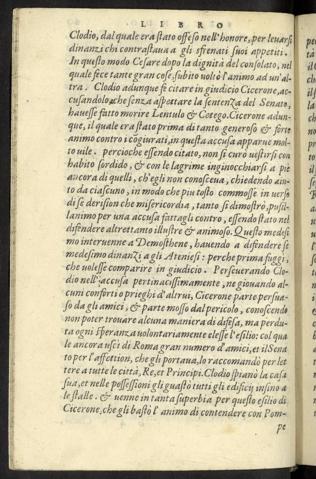 LIBRO
Clodio, dal quale era stato offeso nell'honore, per levarsi
dinanzi chi contrastava a gli sfrenati suoi appetiti.
In questo modo Cesare dopo la dignità del consolato, nel
quale fece tante gran cose, subito voltò l'animo ad un'al-
tra. Clodio adunque fè citare in giudicio Cicerone, ac-
cusandolo, che senza aspettare la sentenza del Senato,
havesse fatto morire Lentulo & Cetego. Cicerone adun-
que, il quale era stato prima di tanto generoso & forte
animo contro i cōgiurati, in questa accusa apparue mol-
to uile. percioche essendo citato, non si curò uestirsi con
habito sordido, & con le lagrime inginocchiarsi a piè
ancora di quelli, ch'egli non conosceua, chiedendo aiu-
to da ciascuno, in modo che piu tosto commosse in verso
di se derision che misericordia, tanto si dimostrò pusil-
lanimo per una accusa fattagli contro, essendo stato nel
difendere altrettanto illustre & animoso. Questo medesi
mo interuenne a Demosthene, hauendo a difendere se
medesimo dinanzi a gli Ateniesi: perche prima fuggì,
che uolesse comparire in giudicio. Perseuerando Clo-
dio nell'accusa pertinacissimamente, ne giouando al-
cuni conforti o prieghi d'altrui, Cicerone parte persua-
so da gli amici, & parte mosso dal pericolo, conoscendo
non poter trouare alcuna maniera di difesa, ma perdu-
ta ogni speranza uolontariamente elesse l'esilio: col qua
le ancora usci di Roma gran numero d'amici, et il Sena
to per l'affettion, che gli portaua, lo raccomandò per let
tere a tutte le città, Re, et Principi. Clodio spianò la casa
sua, et nelle possessioni gli guastò tutti gli edificij insino a
le stalle. & uenne in tanta superbia per questo esilio di
Cicerone, che gli bastò l'animo di contendere con Pom-
pe